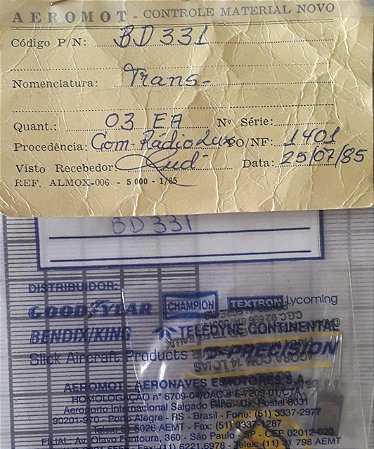 AEROMOT - CONTROLE MATERIAL NOVO
Código P/N: BD331
Nomenclatura: Trans-
Quant.: 03 EA Nº Série:
Procedência: Com. Rádio Lux PO/NF: 1401
Visto Recebedor Data: 25/07/85
REF. ALMOX-006 - 5 000 - 1/85
BD331
DISTRIBUIDOR:
GOODYEAR CHAMPION TEXTRON Lycoming
BENDIX/KING TELEDYNE CONTINENTAL
Slick Aircraft Products PRECISION
AEROMOT - AERONAVES E MOTORES S.A.
HOMOLOGAÇÃO nº 6709-04/DAC
Aeroporto Internacional Salgado Filho Postal 8031
Porto Alegre - RS - Brasil - Fone: (51) 3337-2977
6026 AEMT - Fax: (51)
FILIAL: Av. Olavo Fontoura, 360 - São Paulo - SP - CEP 02012-020
6221.6978 - AEMT